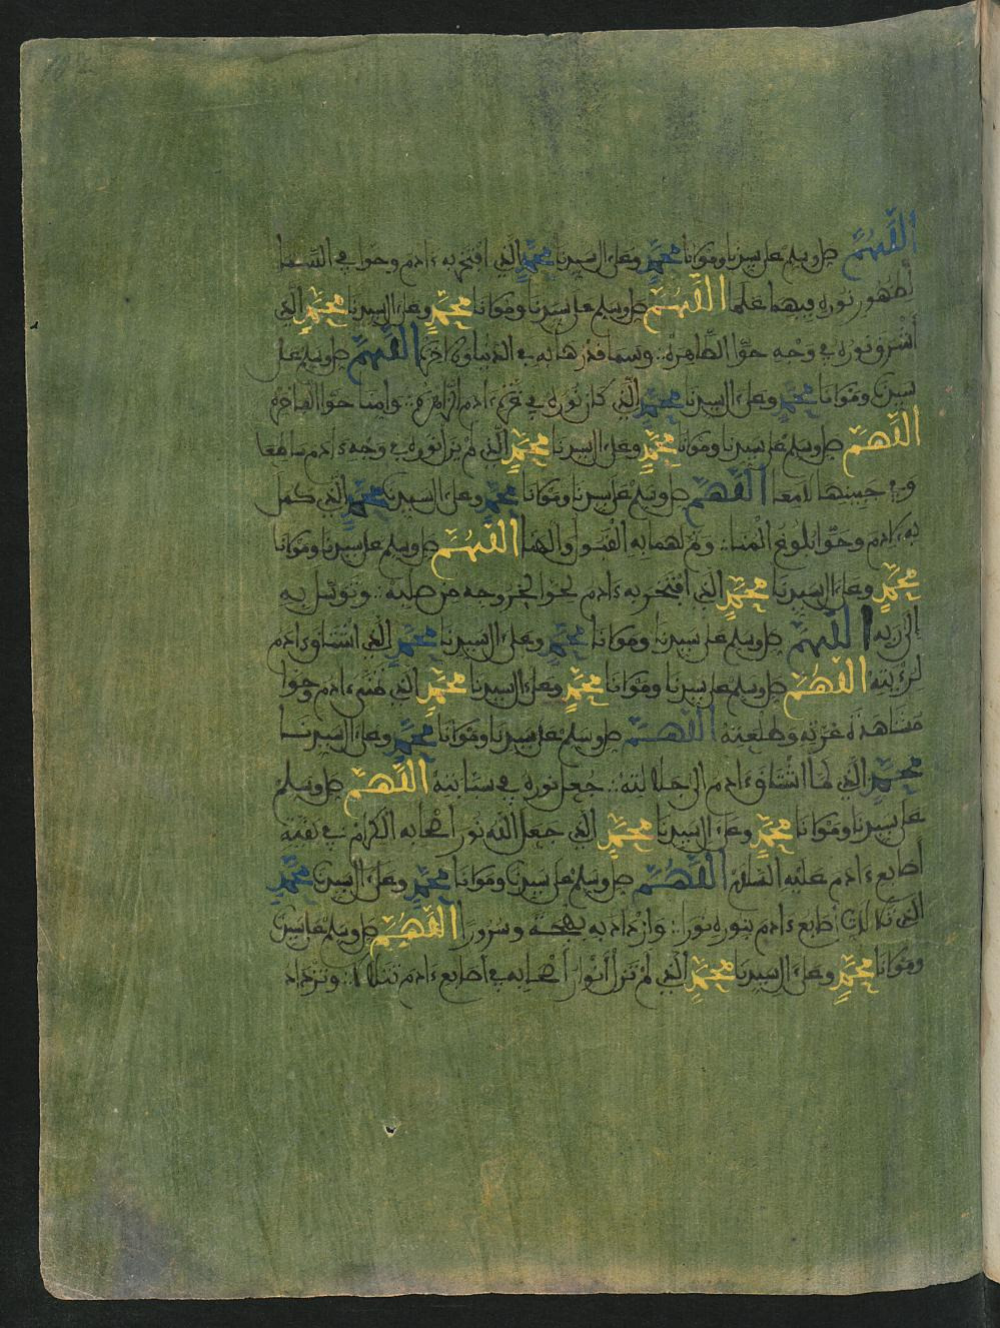 اللهم صل وسلم على سيدنا ومولانا محمد وعلى ال سيدنا محمد الذي افتخر به ءادم وحوا في السما
لظهور نوره فيهما علما اللهم صل وسلم على سيدنا ومولانا محمد وعلى ال سيدنا محمد الذي
أشرق نوره في وجه حوا الطاهرة وسما قدرها به في الدنيا والاخرة اللهم صل وسلم على
سيدنا ومولانا محمد وعلى ال سيدنا محمد الذي كان نوره في غرة ءادم الزاهرة وامنا حوا الفاخرة
اللهم صل وسلم على سيدنا ومولانا محمد وعلى ال سيدنا محمد الذي لم يزل نوره في وجه ءادم ساطعا
وفي جبينها لامعا اللهم صل وسلم على سيدنا ومولانا محمد وعلى ال سيدنا محمد الذي كمل
به لادم وحوا بلوغ المنا وتم لهما به القبول والهنا اللهم صل وسلم على سيدنا ومولانا
محمد وعلى ال سيدنا محمد الذي افتخر به ءادم لحوا لخروجه من صلبه وتوسل به
الى ربه اللهم صل وسلم على سيدنا ومولانا محمد وعلى ال سيدنا محمد الذي اشتاق ءادم
لرؤيته اللهم صل وسلم على سيدنا ومولانا محمد وعلى ال سيدنا محمد الذي ءادم وحوا
مشاهدة غرته وطلعته اللهم صل وسلم على سيدنا ومولانا محمد وعلى ال سيدنا
محمد الذي لما اشتاق ءادم الى جلالته جعل نوره في سبابته اللهم صل وسلم
على سيدنا ومولانا محمد وعلى ال سيدنا محمد الذي جعل الله نور أصحابه الكرام في بقية
أصابع ءادم عليه السلام اللهم صل وسلم على سيدنا ومولانا محمد وعلى ال سيدنا محمد
الذي تلالات أصابع ءادم بنوره نورا وازداد به بهجة وسرورا اللهم صل وسلم على سيدنا
ومولانا محمد وعلى ال سيدنا محمد الذي لم تزل أنوار أصحابه في أصابع ءادم تتلالا وتزداد